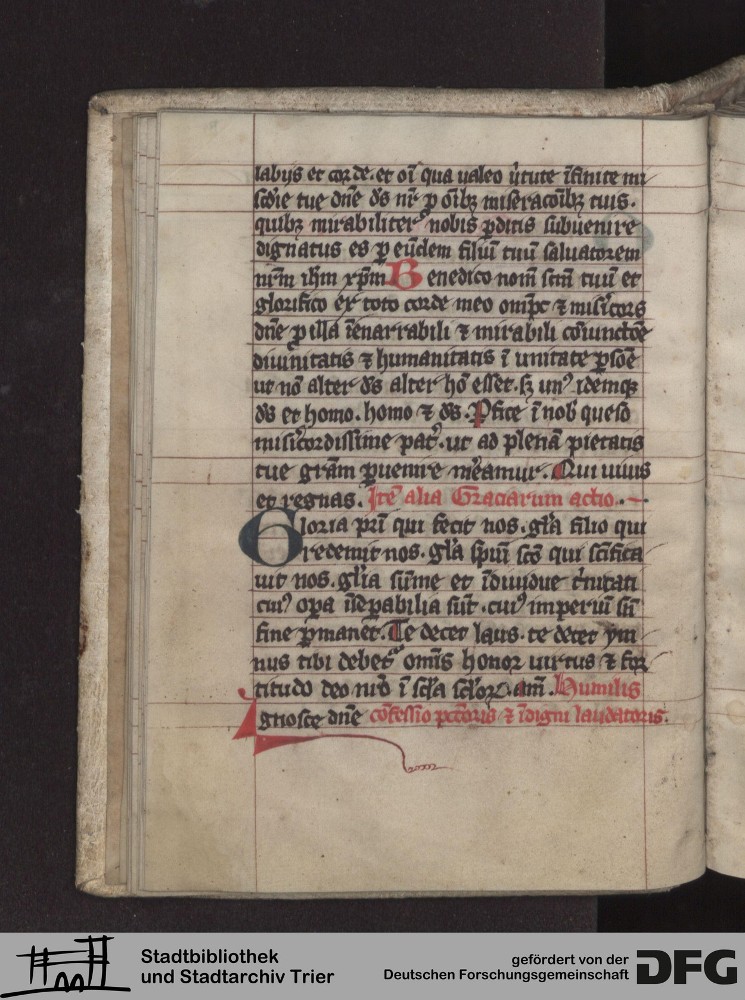 labijs et corde. et oi᷑ qua ualeo v̾tute i̅finite mi
sc̾die tue dn̅e ds̅ nr̅ ꝑ oi̅bꝫ miserac̅oi̅bꝫ tuis.
quibꝫ mirabiliter nobis ꝑditis subuenire
dignatus es ꝑ eu̅dem filiu̅ tuu̅ saluatorem
nr̅m ih̅m xp̅m Benedico nom̅ scm̅ tuu̅ et
glorifico ex toto corde meo omp̅c ⁊ mis̾icors
dn̅e ꝑ illa i̅enarrabili ⁊ mirabili co̅iunctōe
diuinitatis ⁊ humanitatis i̅ unitate ꝑso̅e
ut no̅ alter ds̅ alter ho̅ esset. sꝫ unꝰ idemqꝫ
ds̅ et homo. homo ⁊ ds̅. Ꝓfice i̅ nob̅ queso
mis̾icordissime pat̾. ut ad plena̅ pietatis
tue gra̅m ꝑuenire m̾eamur. Qui uiuis
et regnas. Ite̅ alia Graciarum actio.
Gloria pr̅i qui fecit nos. gl̅a filio qui
redemit nos. gl̅a spi̅ui sc̅o qui sc̅ifica
uit nos. gl̅ia su̅me et i̅diuidue t̾nitati
cuiꝰ oꝑa i̅seꝑabilia su̅t. cuiꝰ imperiu̅ si̅
fine ꝑmanet. Te decet laus. te decet ym
nus tibi debet᷑ omi̅s honor uirtus ⁊ for
titudo deo nr̅o i̅ scl̅a scl̅oꝝ. am̅. Humilis
Agnosce dn̅e co̅fessio pctōris ⁊ i̅digni laudatoris.
Stadtbibliothek
und Stadtarchiv Trier
gefördert von der
Deutschen Forschungsgemeinschaft
DFG